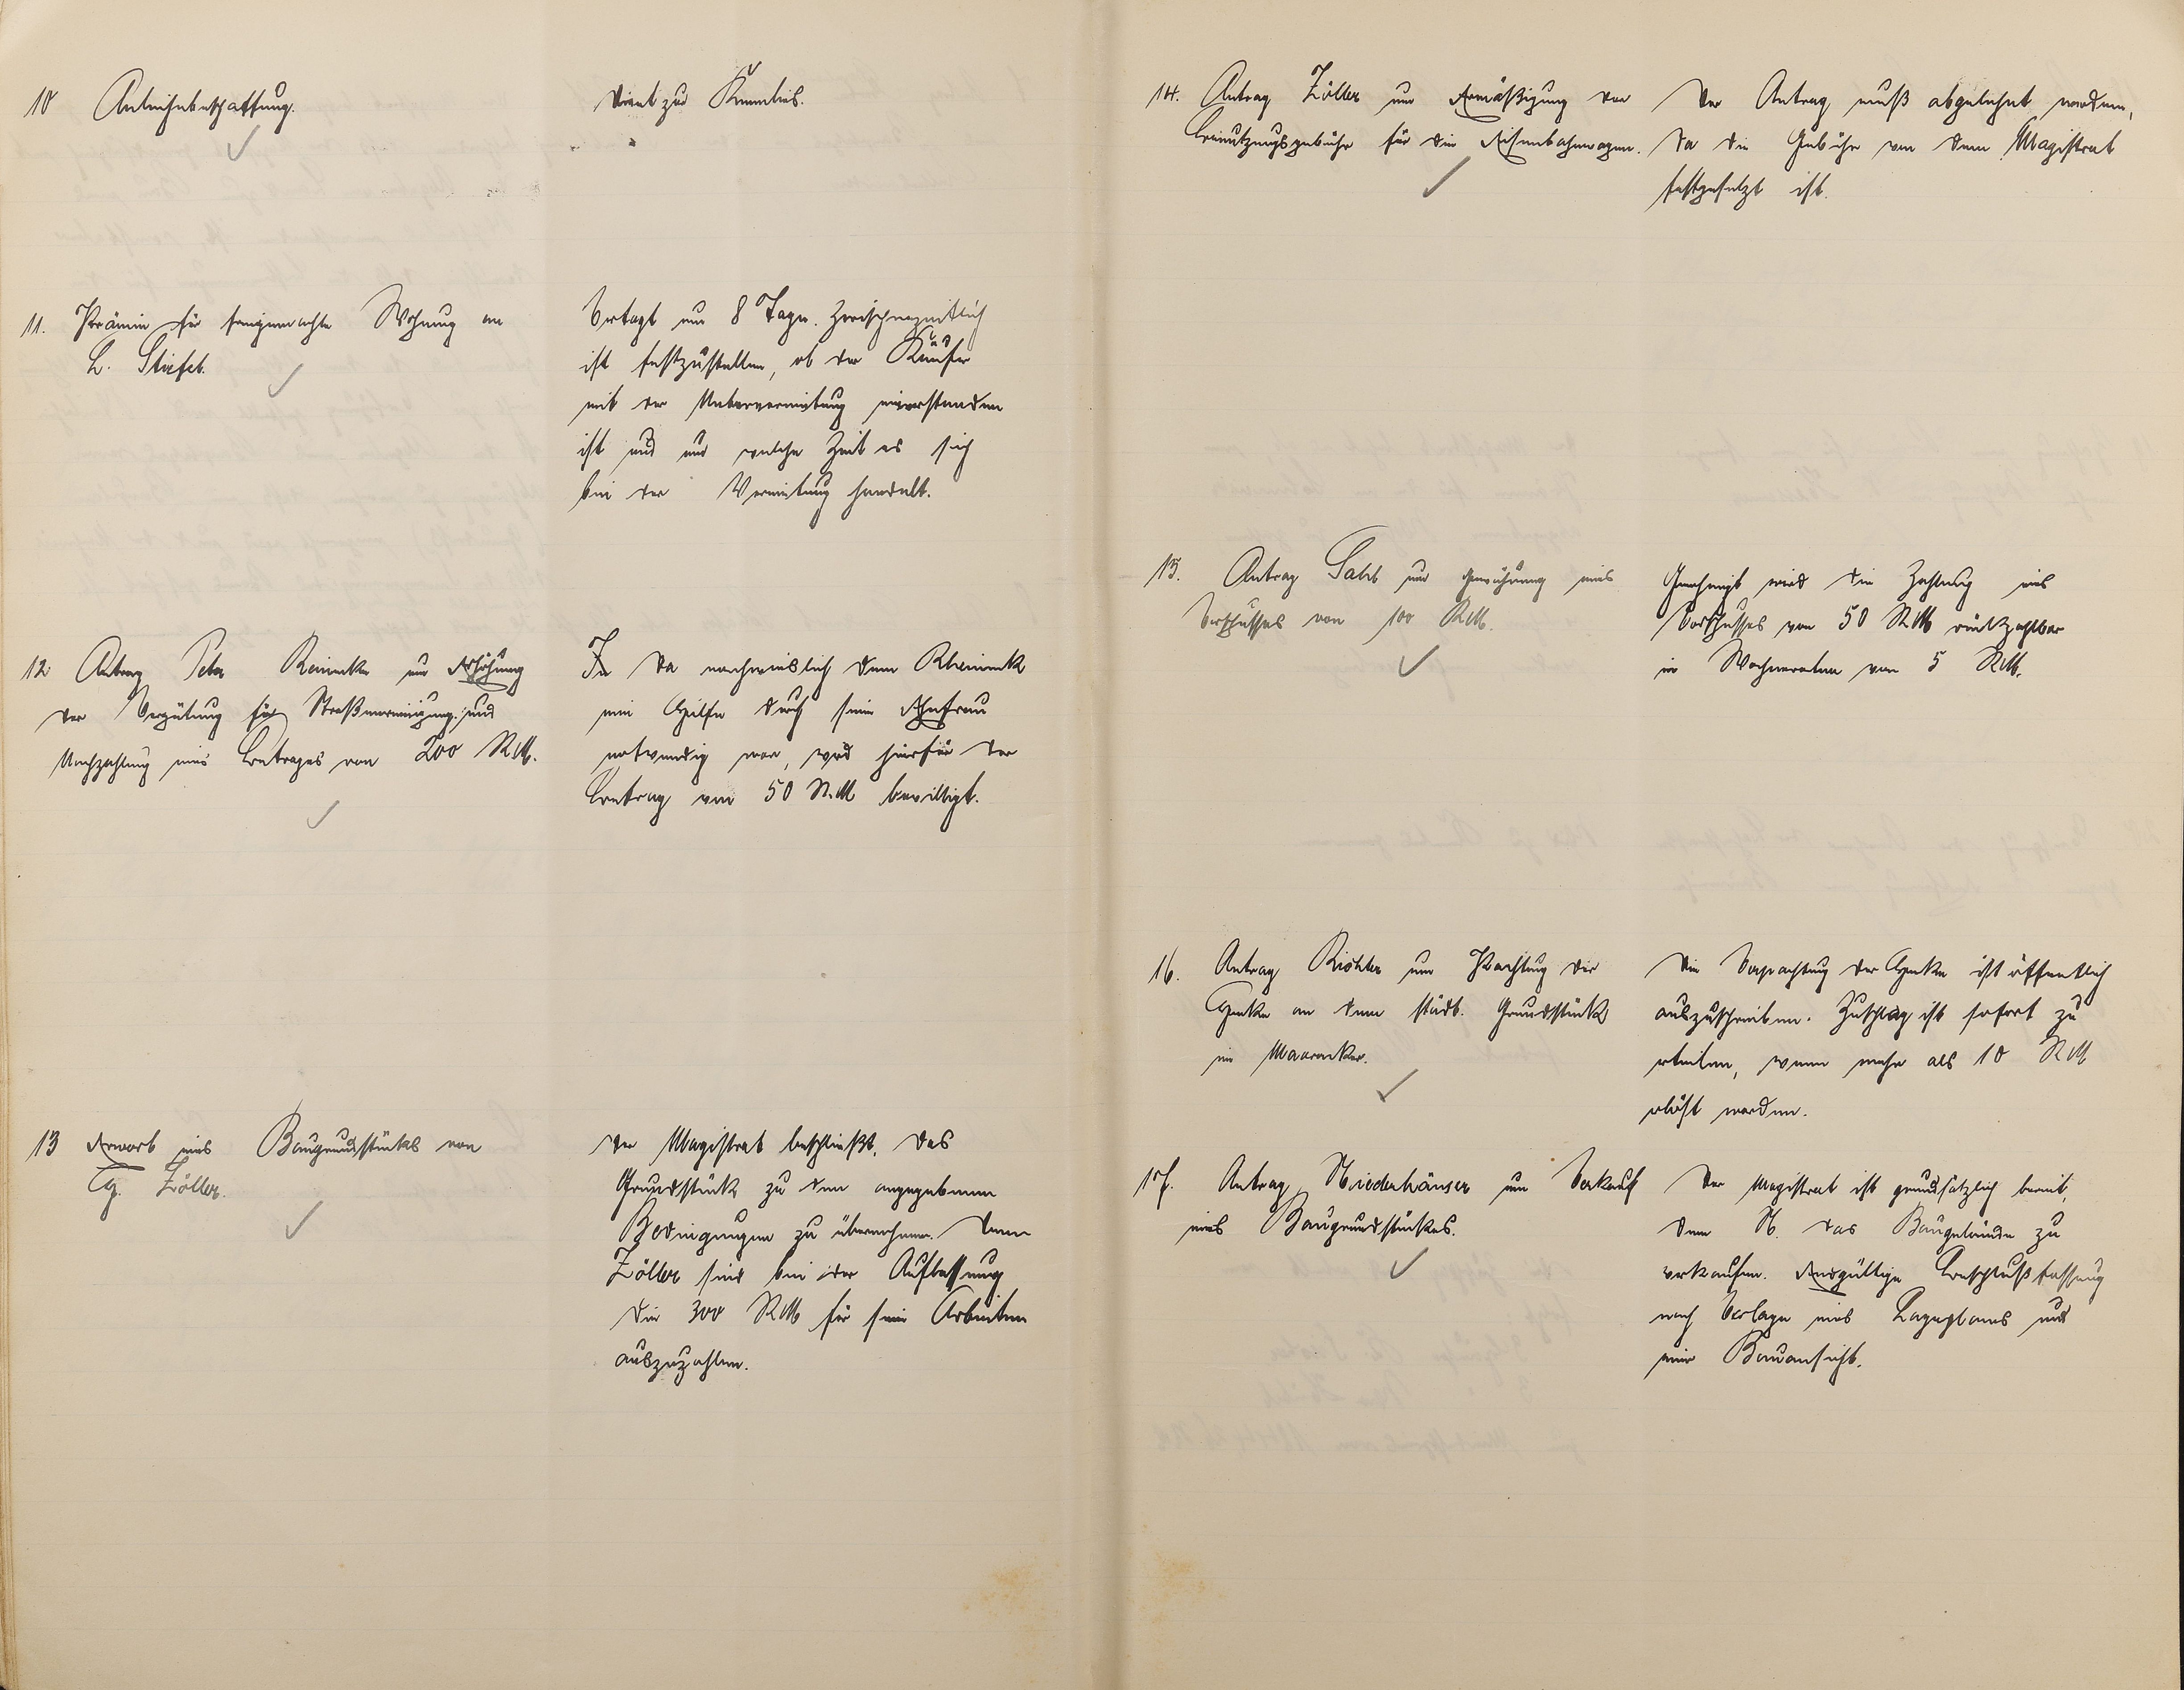 10 Anleihebeschaffung.
Dient zur Kenntnis.
11. Prämie für freigemachte Wohnung an
L. Stiefel.
Vertagt um 8 Tage. Zwischenzeitlich
ist festzustellen, ob der Käufer
mit der Untervermietung einverstanden
ist und um welche Zeit es sich
bei der Vermietung handelt.
12. Antrag Peter Reineck um Erhöhung
der Vergütung für Straßenreinigung und
Nachzahlung eines Betrages von 200 RM.
Da nachweislich dem Rheineck
eine Hilfe durch seine Ehefrau
notwendig war, wird hierfür der
Betrag von 50 RM bewilligt.
13 Erwerb eines Baugrundstücks von
Hch. Zöller.
Der Magistrat beschließt, das
Grundstück zu den angegebenen
Bedingungen zu übernehmen. Dem
Zöller sind bei der Auflassung
die 300 RM für seine Arbeiten
auszuzahlen.
14. Antrag Zöller um Ermäßigung der
Benutzungsgebühr für die Eisenbahnwagen.
Der Antrag muß abgelehnt werden,
da die Gebühr von dem Magistrat
festgesetzt ist.
15. Antrag um Gewährung eines
Vorschusses von 100 RM.
Genehmigt wird die Zahlung eines
Vorschusses von 50 RM rückzahlbar
in Wochenraten von 5 RM.
16. Antrag Richter um Pachtung der
Hecke an dem städt. Grundstück
im
Die Verpachtung der Hecke ist öffentlich
auszuschreiben. Zuschlag ist sofort zu
erteilen, wenn mehr als 10 RM
erlöst werden.
17. Antrag Niederhäuser um Verkauf
eines Baugrundstückes.
Der Magistrat ist grundsätzlich bereit,
dem N. das Baugelände zu
verkaufen. Endgültige Beschlußfassung
nach Vorlage eines Lageplanes und
einer Bauansicht.